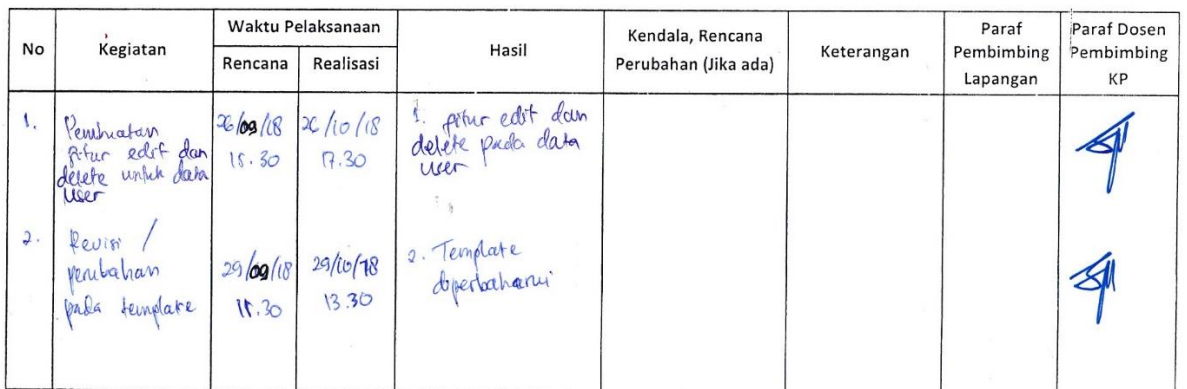 No
Kegiatan
Waktu Pelaksanaan
Rencana
Realisasi
Hasil
Kendala, Rencana
Perubahan (Jika ada)
Keterangan
Paraf
Pembimbing
Lapangan
Paraf Dosen
Pembimbing
KP
1.
Pembuatan
fitur edit dan
delete untuk data
user
26/09/18
15.30
26/10/18
17.30
1. fitur edit dan
delete pada data
user
2.
Revisi /
perubahan
pada template
29/09/18
15.30
29/10/18
13.30
2. Template
diperbaharui